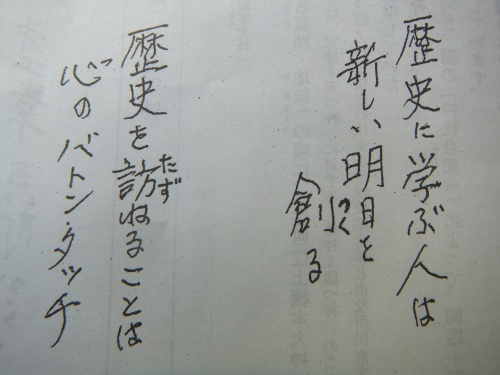 歴史に学ぶ人は
新しい明日を
創る
歴史を訪ねることは
心のバトン・タッチ